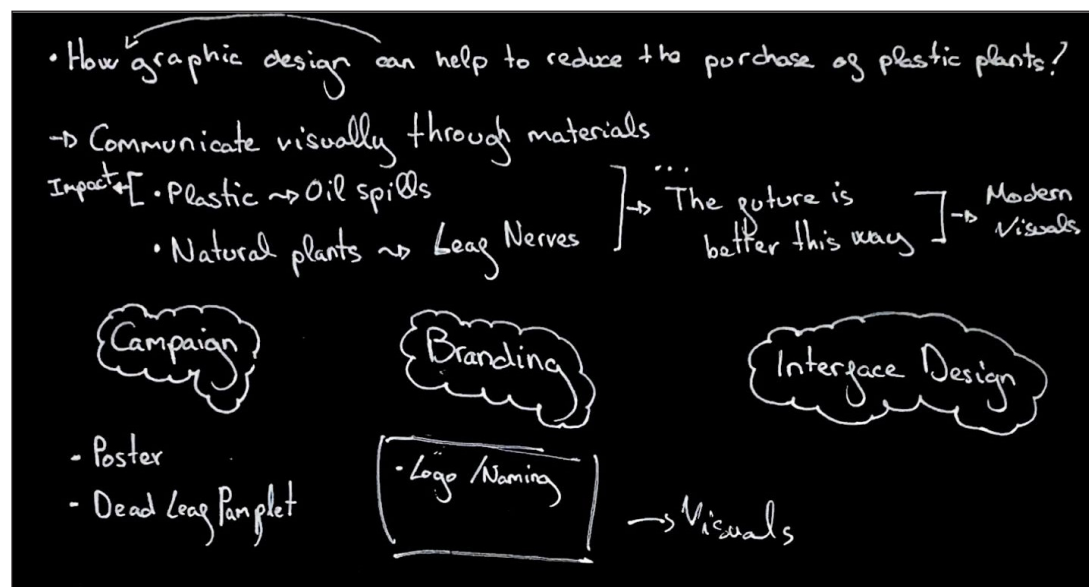 • How graphic design can help to reduce the purchase of plastic plants?
→ Communicate visually through materials
Impact ← [ • Plastic → Oil spills
• Natural plants → Leaf Nerves
] → ... The future is
better this way
] → Modern
Visuals
Campaign
Branding
Interface Design
- Poster
- Dead Leaf Pamplet
• Logo / Naming
→ Visuals